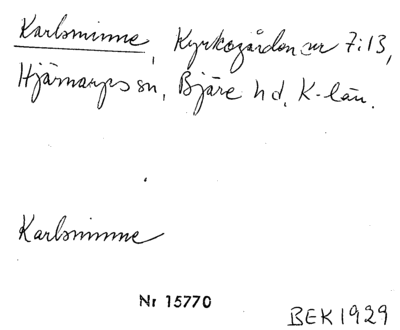 Karlsminne, Kyrkogården nr 7:13,
Hjärnarps sn, Bjäre hd, K-län.
Karlsminne
Nr 15770
BEK 1929